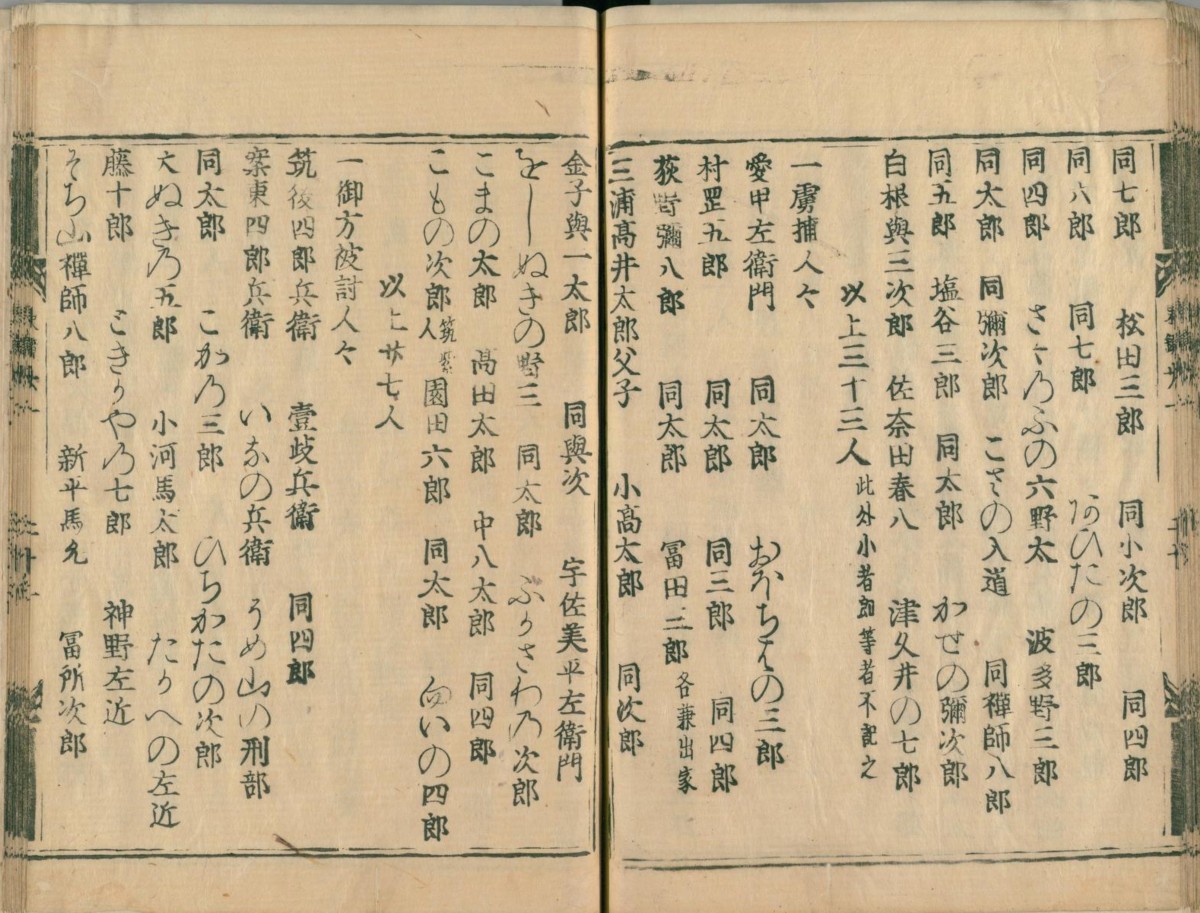 同七郎 松田三郎 同小次郎 同四郎
同六郎 同七郎 あひたの三郎
同四郎 さゝのふの六野太 波多野三郎
同太郎 同彌次郎 こさゝの入道 同禪師八郎
同五郎 塩谷三郎 同太郎 かせの彌次郎
白根與三次郎 佐奈田春八 津久井の七郎
以上三十三人 此外小者郎等者不記之
一虜捕人々
愛甲左衛門 同太郎 おほちはの三郎
村罡五郎 同太郎 同三郎 同四郎
荻野彌八郎 同太郎 冨田三郎 各兼出家
三浦髙井太郎父子 小髙太郎 同次郎
金子與一太郎 同與次 宇佐美平左衛門
をしぬきの野三 同太郎 ふかさわの次郎
こまの太郎 髙田太郎 中八太郎 同四郎
こもの次郎 筑紫人 園田六郎 同太郎 向いの四郎
以上廿七人
一御方被討人々
筑後四郎兵衛 壹岐兵衛 同四郎
案東四郎兵衛 いなの兵衛 うめ山の刑部
同太郎 こかの三郎 ひちかたの次郎
大ぬきの五郎 小河馬太郎 たかへの左近
藤十郎 ときかやの七郎 神野左近
そち山禪師八郎 新平馬允 冨所次郎